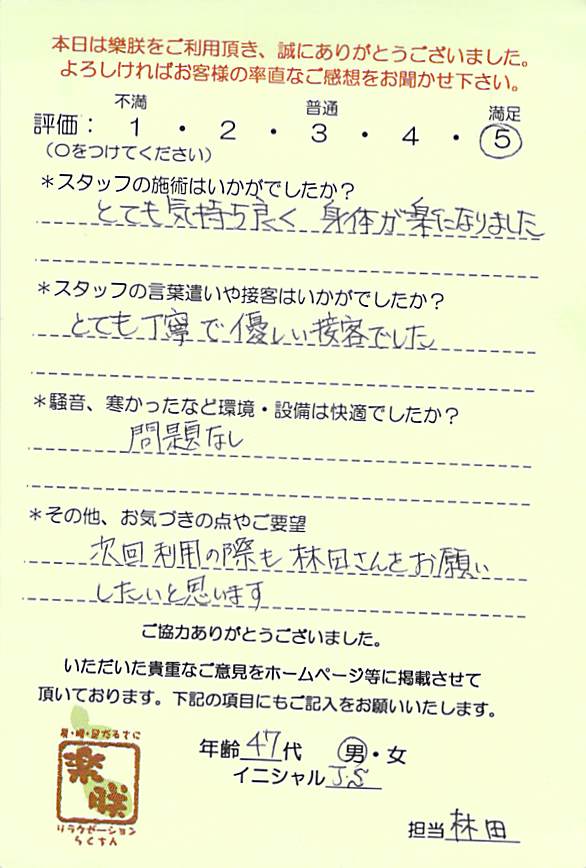 本日は樂朕をご利用頂き、誠にありがとうございました。
よろしければお客様の率直なご感想をお聞かせ下さい。
不満 普通 満足
評価： 1 ・ 2 ・ 3 ・ 4 ・ 5
（○をつけてください）
＊スタッフの施術はいかがでしたか？
とても気持ち良く 身体が楽になりました
＊スタッフの言葉遣いや接客はいかがでしたか？
とても丁寧で優しい接客でした
＊騒音、寒かったなど環境・設備は快適でしたか？
問題なし
＊その他、お気づきの点やご要望
次回利用の際も林田さんをお願い
したいと思います
ご協力ありがとうございました。
いただいた貴重なご意見をホームページ等に掲載させて
頂いております。下記の項目にもご記入をお願いいたします。
年齢 47代 男・女
イニシャル J.S
肩・腰・足かるてに
楽朕
リラクゼーション
らくちん
担当 林田